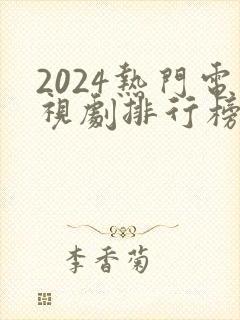 2024熱門電
視劇排行榜
李香菊